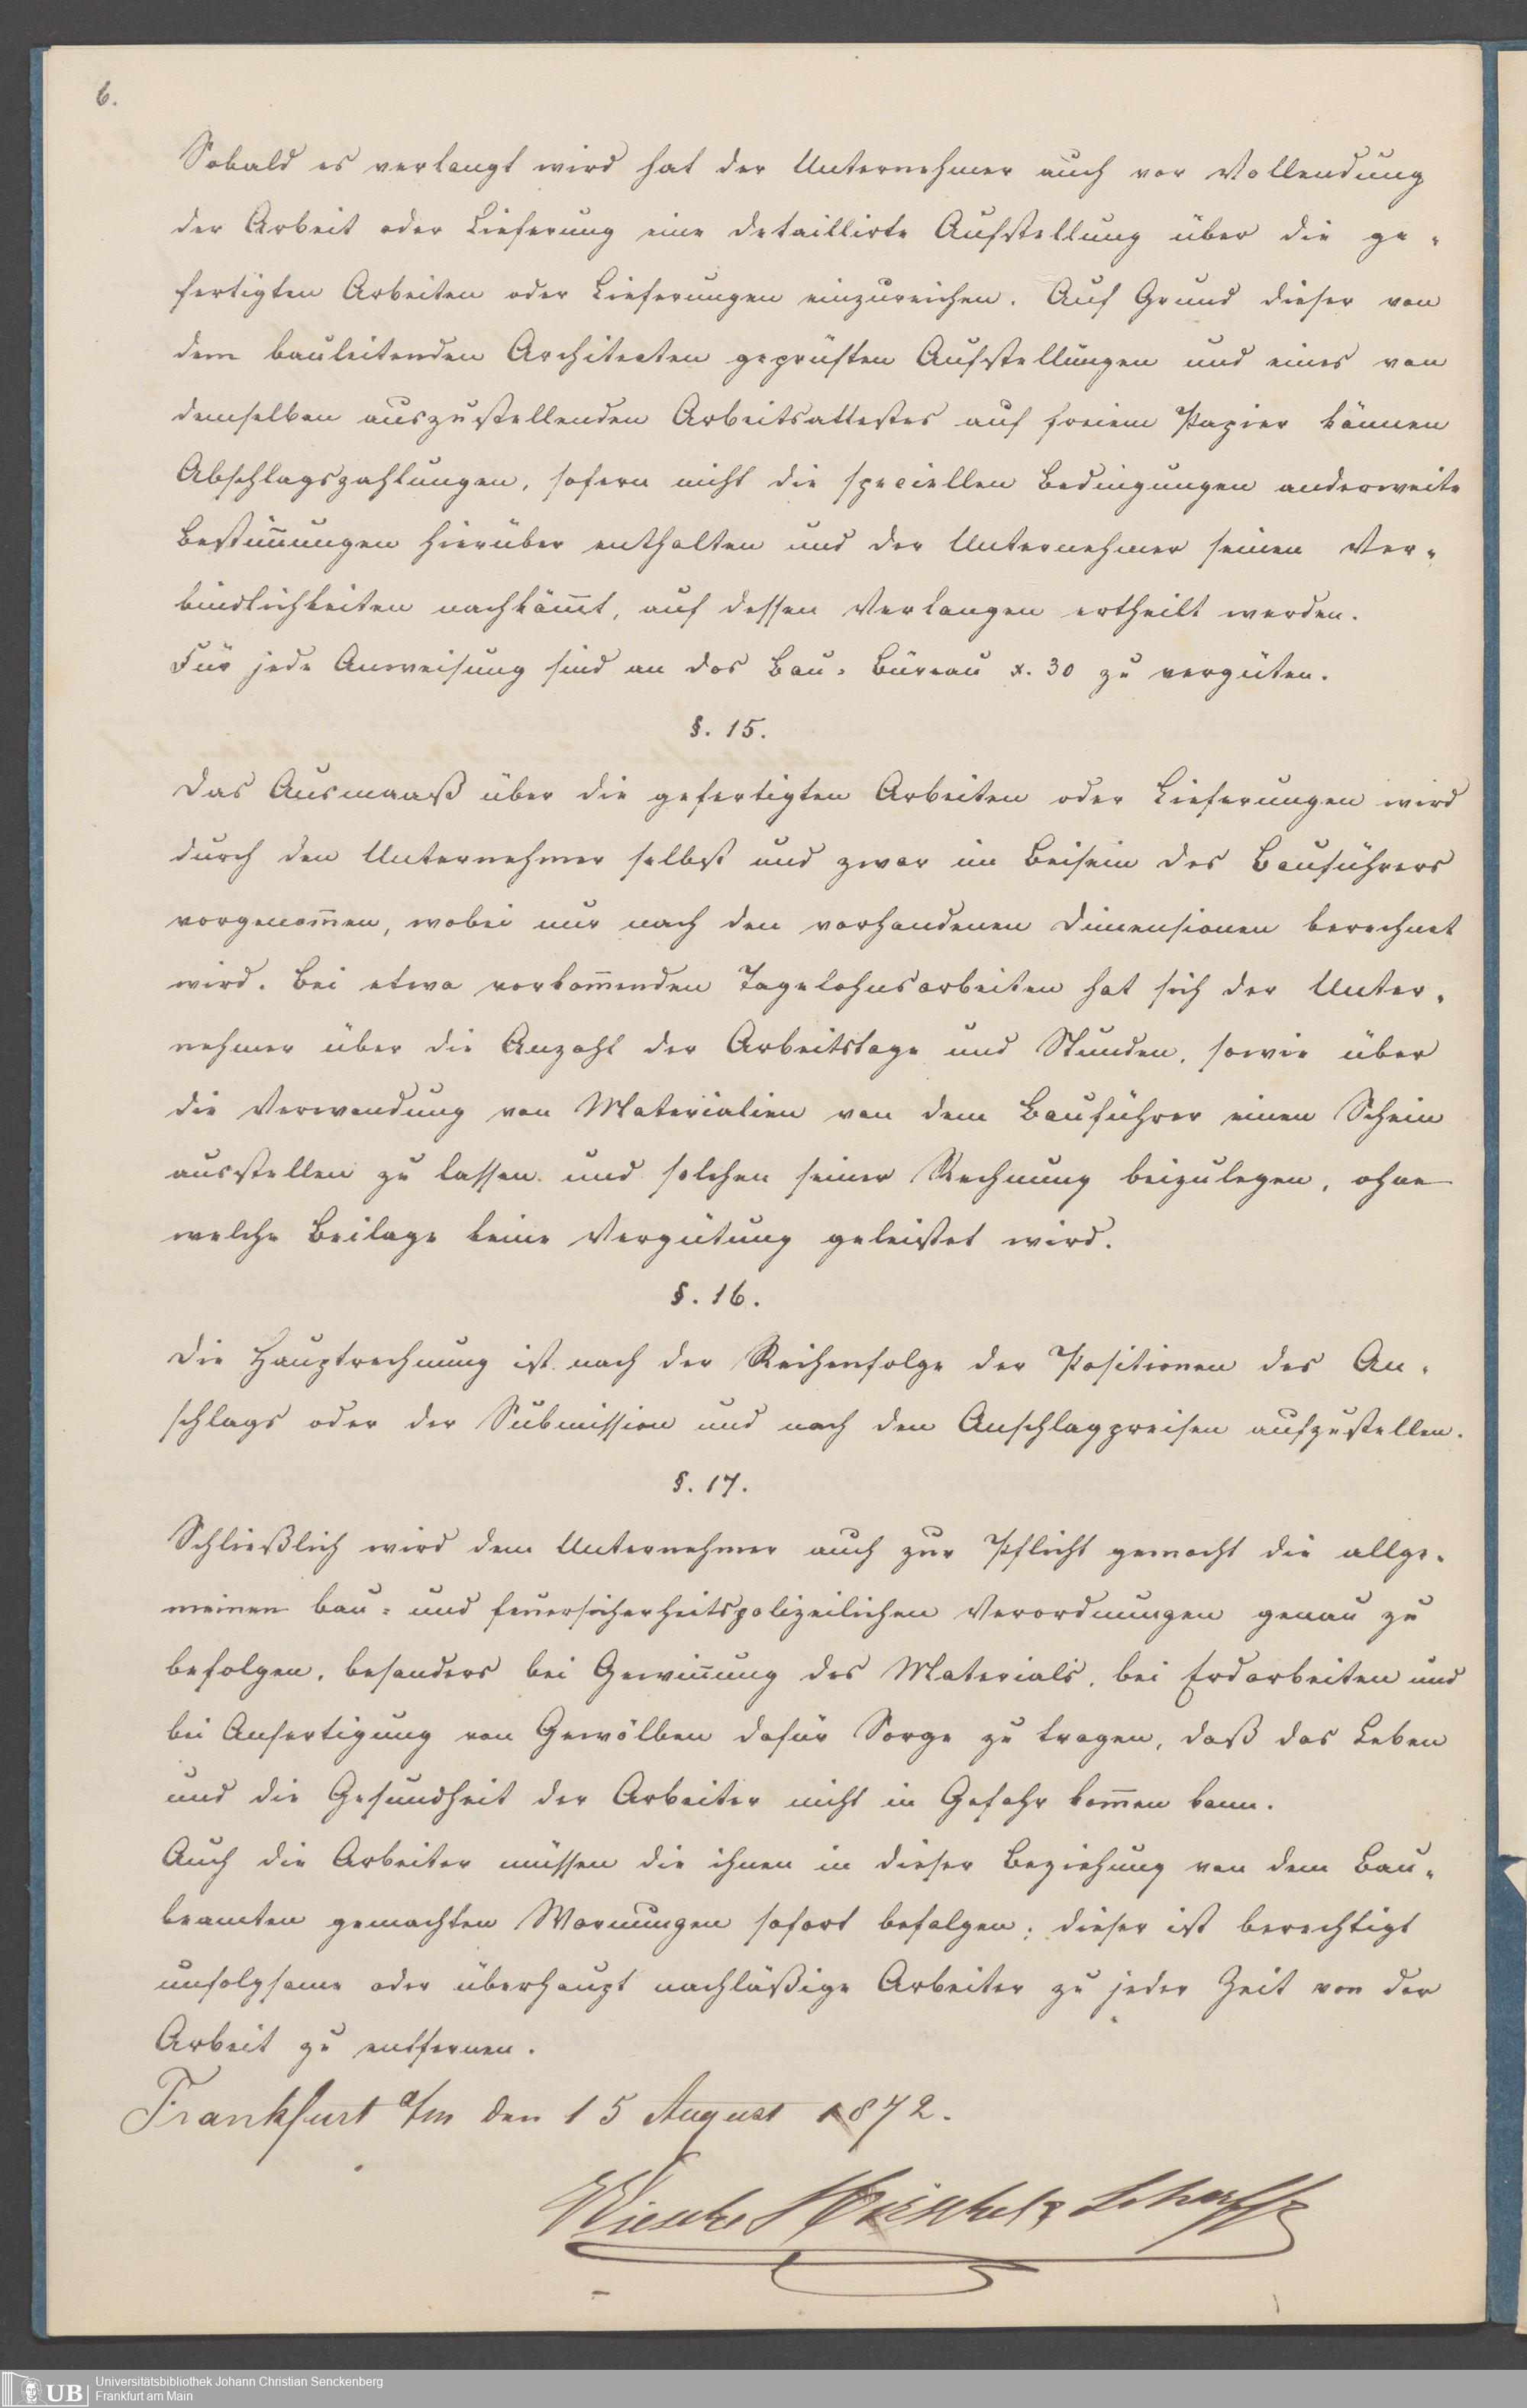 6.
Sobald es verlangt wird hat der Unternehmer auch vor Vollendung
der Arbeit oder Lieferung eine detaillirte Aufstellung über die ge-
fertigten Arbeiten oder Lieferungen einzureichen. Auf Grund dieser von
dem bauleitenden Architecten geprüften Aufstellungen und eines von
demselben auszustellenden Arbeitsattestes auf freiem Papier können
Abschlagszahlungen, sofern nicht die speciellen Bedingungen anderweite
Bestim̅ungen hierüber enthalten und der Unternehmer seinen Ver-
bindlichkeiten nachköm̅t, auf dessen Verlangen ertheilt werden.
Für jede Anweisung sind an das Bau-Büreau x. 30 zu vergüten.
§. 15.
Das Ausmaaß über die gefertigten Arbeiten oder Lieferungen wird
durch den Unternehmer selbst und zwar im Beisein des Bauführers
vorgenom̅en, wobei nur nach den vorhandenen Dimensionen berechnet
wird. Bei etwa vorkom̅enden Tagelohnsarbeiten hat sich der Unter-
nehmer über die Anzahl der Arbeitstage und Stunden, sowie über
die Verwendung von Materialien von dem Bauführer einen Schein
ausstellen zu lassen und solchen seiner Rechnung beizulegen, ohne
welche Beilage keine Vergütung geleistet wird.
§. 16.
Die Hauptrechnung ist nach der Reihenfolge der Positionen des An-
schlags oder der Submission und nach den Anschlagpreisen aufzustellen.
§. 17.
Schließlich wird dem Unternehmer auch zur Pflicht gemacht die allge-
meinen bau- und feuersicherheitspolizeilichen Verordnungen genau zu
befolgen, besonders bei Gewin̅ung des Materials, bei Erdarbeiten und
bei Anfertigung von Gewölben dafür Sorge zu tragen, daß das Leben
und die Gesundheit der Arbeiter nicht in Gefahr kom̅en kann.
Auch die Arbeiter müssen die ihnen in dieser Beziehung von dem Bau-
beamten gemachten Warnungen sofort befolgen; dieser ist berechtigt
unfolgsame oder überhaupt nachläßige Arbeiter zu jeder Zeit von der
Arbeit zu entfernen.
Frankfurt a/m den 15 August 1872.
Scharff
UB
Universitätsbibliothek Johann Christian Senckenberg
Frankfurt am Main